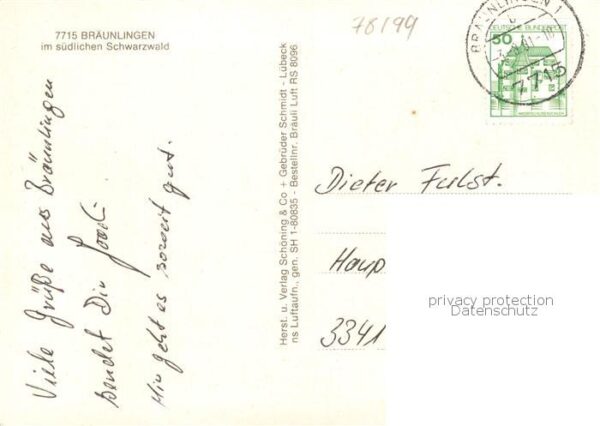 7715 BRÄUNLINGEN
im südlichen Schwarzwald
Viele Grüße aus Bräunlingen
sendet Dir
Mir geht es soweit gut.
Herst. u. Verlag Schöning & Co + Gebrüder Schmidt - Lübeck
ns Luftaufn., gen. SH 1-80835 - Bestellnr. Bräuli Luft RS 8096
78199
BRÄUNLINGEN 1
7715
DEUTSCHE BUNDESPOST
50
Dieter Fulst.
Haup
3341
privacy protection
Datenschutz